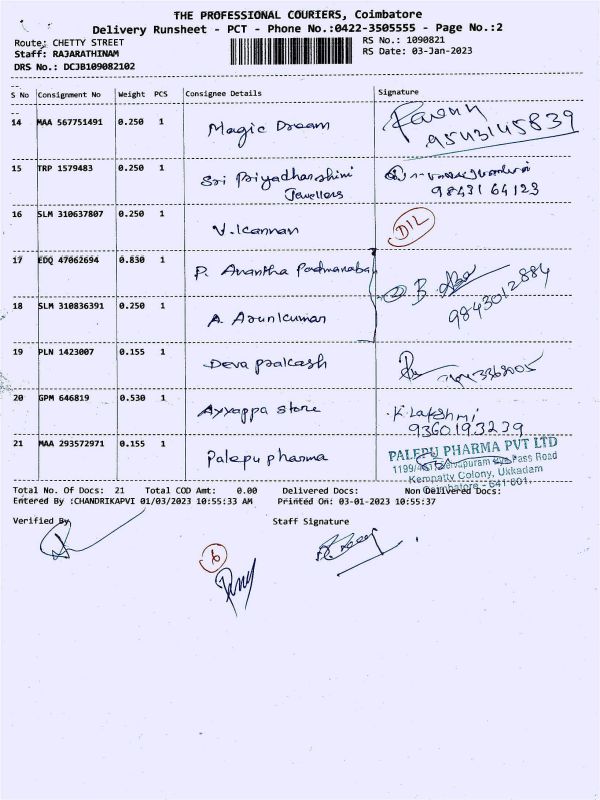 THE PROFESSIONAL COURIERS, Coimbatore
Delivery Runsheet - PCT - Phone No.:0422-3505555 - Page No.:2
Route: CHETTY STREET
RS No.: 1090821
Staff: RAJARATHINAM
RS Date: 03-Jan-2023
DRS No.: DCJB109082102
S No Consignment No Weight PCS Consignee Details Signature
14 MAA 567751491 0.250 1 Magic Dream
9543145839
15 TRP 1579483 0.250 1 Sri Priyadharshini
Jewellers
98431 64123
16 SLM 310637807 0.250 1 V. Kannan D1L
17 EDQ 47062694 0.830 1 P. Anantha Padmanaba
9843012884
18 SLM 310836391 0.250 1 A. Arunkumar
19 PLN 1423007 0.155 1 Deva prakash
20 GPM 646819 0.530 1 Ayyappa store K. Lakshmi
9360193239
21 MAA 293572971 0.155 1 Palepu pharma
PALEPU PHARMA PVT LTD
Pass Road
Kempatty Colony, Ukkadam
Coimbatore - 641 001.
Total No. Of Docs: 21 Total COD Amt: 0.00 Delivered Docs: Non Delivered Docs:
Entered By :CHANDRIKAPVI 01/03/2023 10:55:33 AM Printed On: 03-01-2023 10:55:37
Verified By Staff Signature